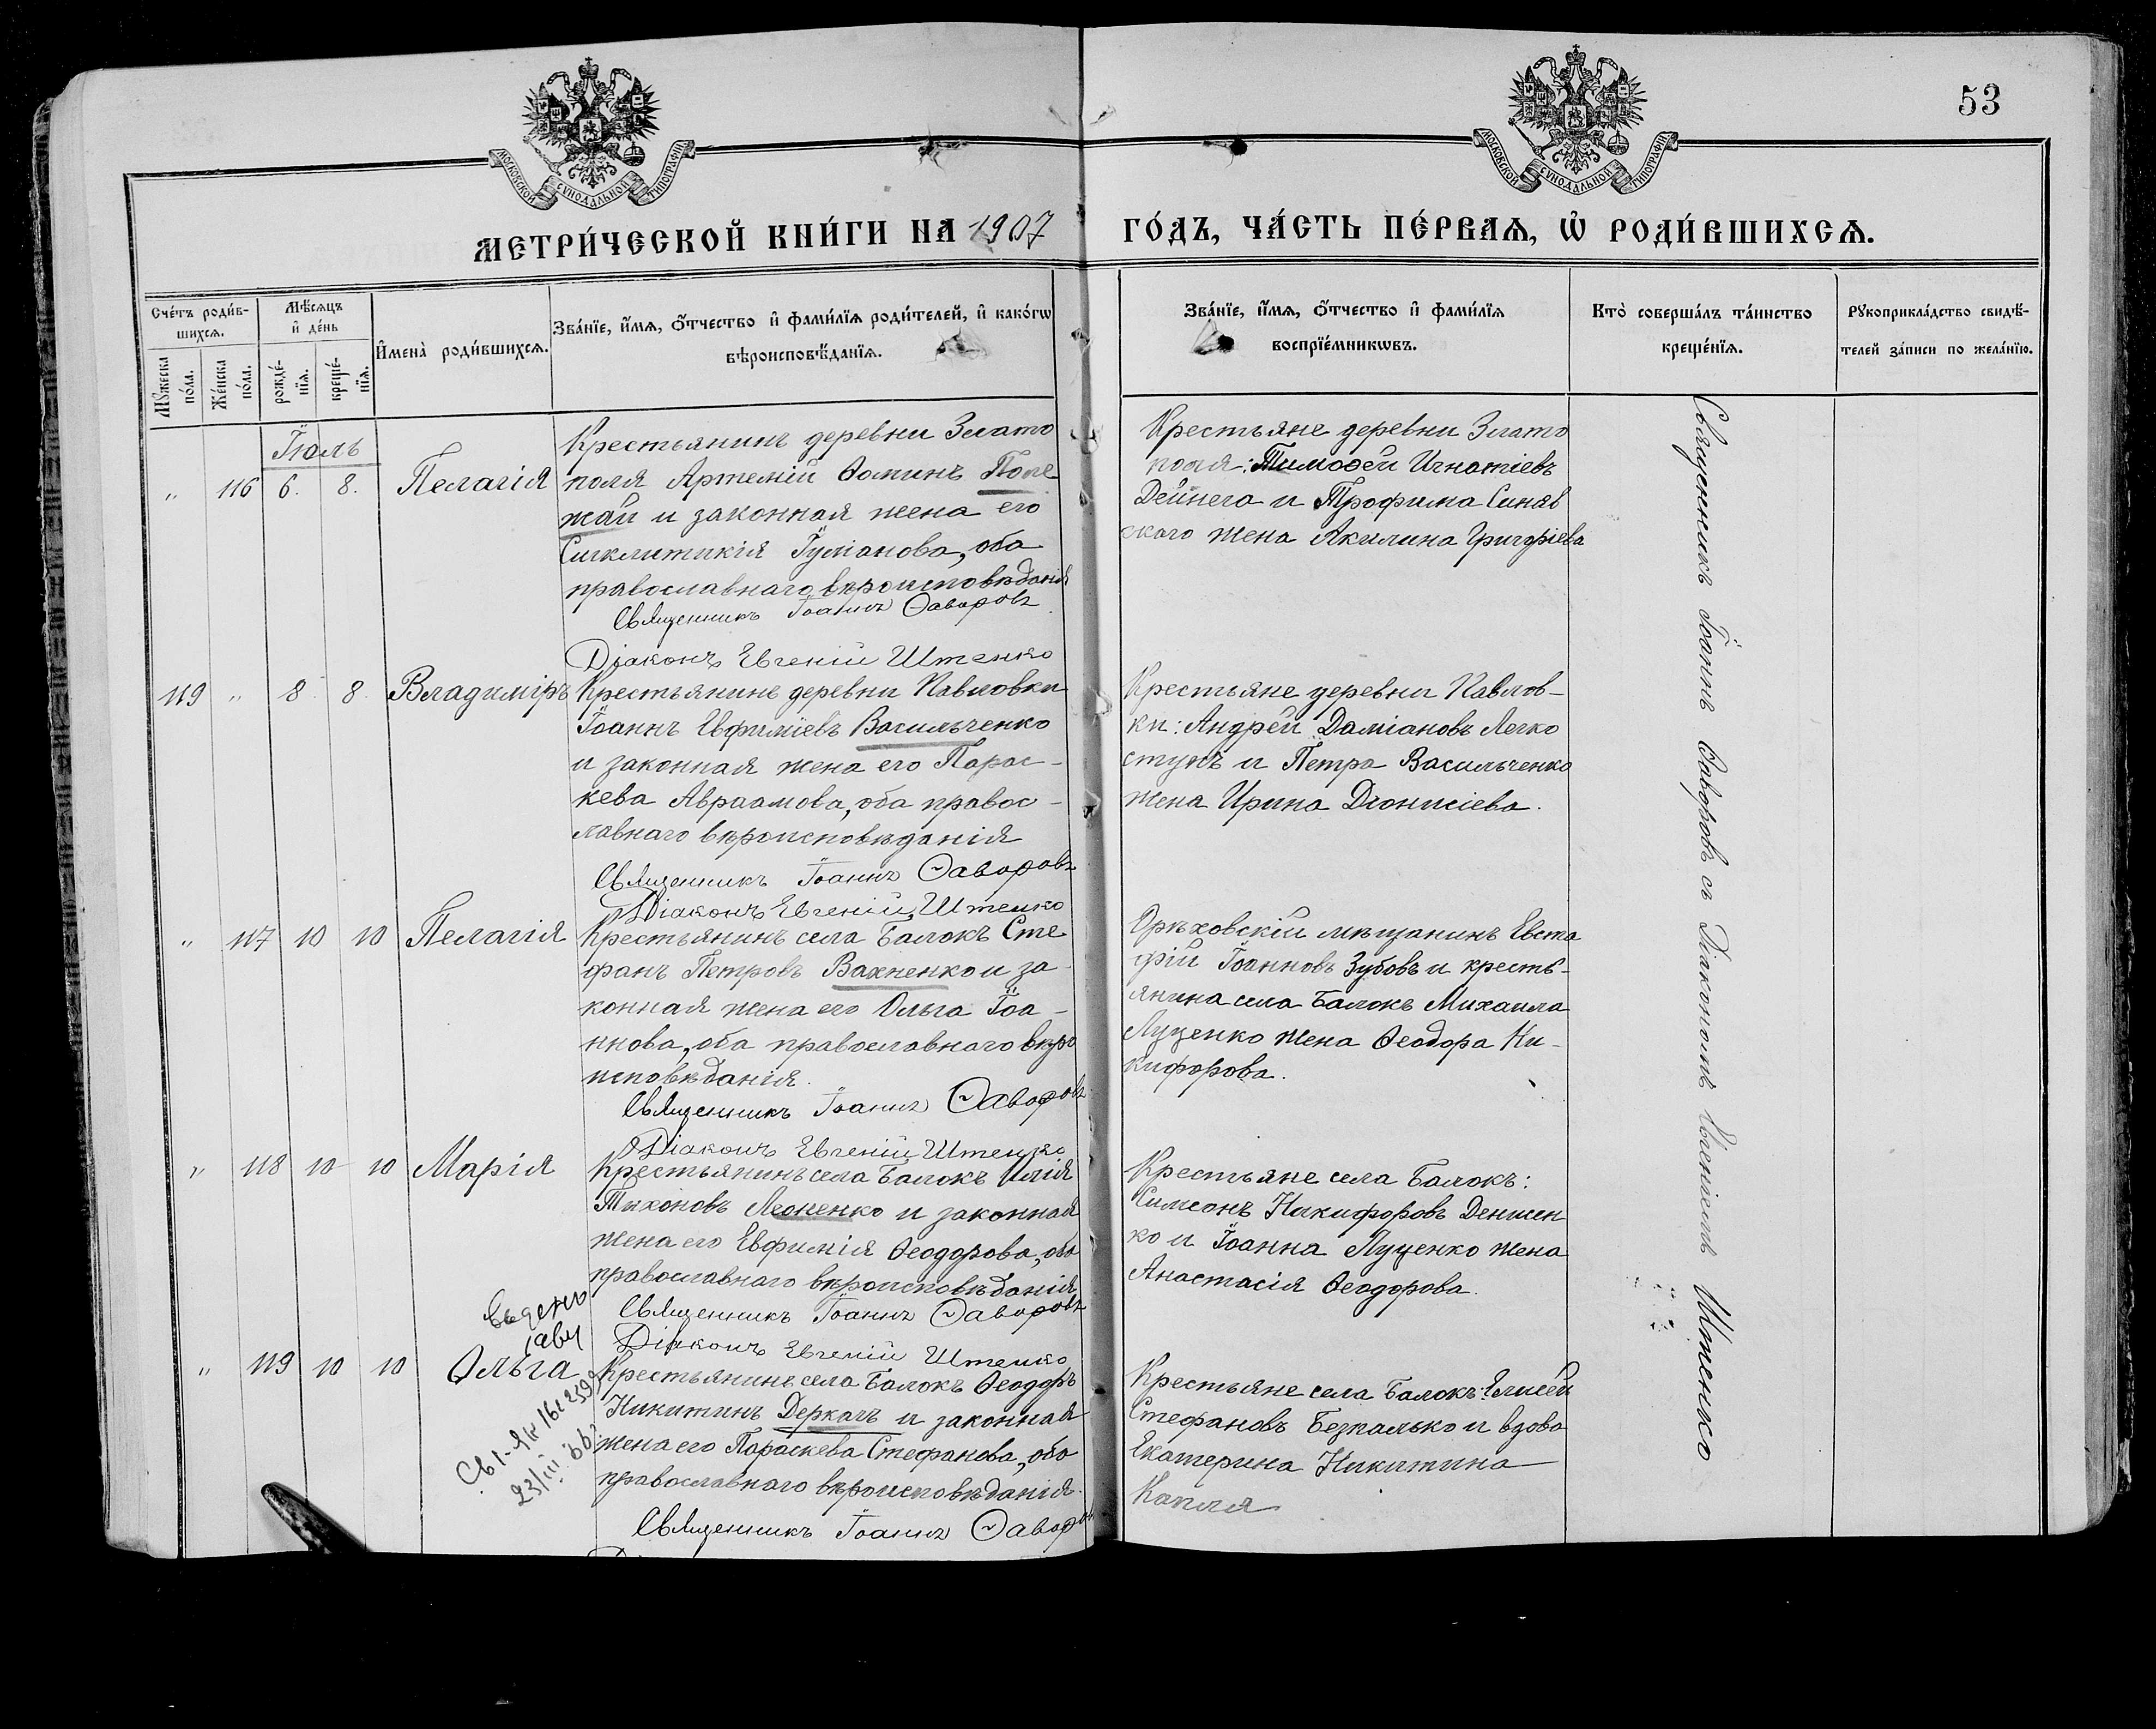 53
МОСКОВСКОЙ СѴНОДАЛЬНОЙ ТИПОГРАФІИ
МОСКОВСКОЙ СѴНОДАЛЬНОЙ ТИПОГРАФІИ
МЕТРИ́ЧЕСКОЙ КНИ́ГИ НА 1907 ГО́ДЪ, ЧА́СТЬ ПЕ́РВАѦ, Ѡ҆ РОДИ́ВШИХСѦ.
Сче́тъ роди́в-
шихсѧ.
Мꙋ́жеска по́ла.
Же́нска по́ла.
Мѣ́сѧцъ
и҆ де́нь
рожде́-
нїѧ.
креще́-
нїѧ.
И҆мена̀ роди́вшихсѧ.
Зва́нїе, и҆́мѧ, ѻ҆́тчество и҆ фами́лїѧ роди́телей, и҆ како́гѡ
вѣроисповѣ́данїѧ.
Зва́нїе, и҆́мѧ, ѻ҆́тчество и҆ фами́лїѧ
воспрїе́мникѡвъ.
Кто̀ соверша́лъ та́инство
креще́нїѧ.
Рꙋкоприкла́дство свидѣ́-
телей за́писи по жела́нїю.
Іюль
„ 116 6. 8. Пелагія
Крестьянинъ деревни Злато
поля Артемій Ѳоминъ Поле
жай и законная жена его
Сигклитикія Гуліанова, оба
православнаго вѣроисповѣданія
Священникъ Іоаннъ Ѳаворовъ
Діаконъ Евгеній Штенко
Крестьяне деревни Злато
поля: Тимоѳей Игнатіевъ
Дейнега и Трофима Синяв
скаго жена Акилина Григоріева
119 „ 8 8 Владиміръ
Крестьянинъ деревни Павловки
Іоаннъ Евфиміевъ Васильченко
и законная жена его Парас-
кева Авраамова, оба правос-
лавнаго вѣроисповѣданія
Священникъ Іоаннъ Ѳаворовъ
Діаконъ Евгеній Штенко
Крестьяне деревни Павлов-
ки: Андрей Даміановъ Легко
ступъ и Петра Васильченко
жена Ирина Діонисіева.
„ 117 10 10 Пелагія
Крестьянинъ села Балокъ Сте
фанъ Петровъ Вахненко и за-
конная жена его Ольга Іоа-
ннова, оба православнаго вѣро
исповѣданія.
Священникъ Іоаннъ Ѳаворовъ
Діаконъ Евгеній Штенко
Орѣховскій мѣщанинъ Евста
фій Іоанновъ Зубовъ и кресть-
янина села Балокъ Михаила
Луценко жена Ѳеодора Ни-
кифорова.
„ 118 10 10 Марія
Крестьянинъ села Балокъ Илія
Тихоновъ Леоненко и законная
жена его Евфимія Ѳеодорова, оба
православнаго вѣроисповѣданія
Священникъ Іоаннъ Ѳаворовъ
Діаконъ Евгеній Штенко
Крестьяне села Балокъ:
Симеонъ Никифоровъ Денисен
ко и Іоанна Луценко жена
Анастасія Ѳеодорова.
„ 119 10 10 Ольга
23/III
Крестьянинъ села Балокъ Ѳеодоръ
Никитинъ Деркачъ и законная
жена его Параскева Стефанова, оба
православнаго вѣроисповѣданія.
Священникъ Іоаннъ Ѳаворовъ
Крестьяне села Балокъ: Елисей
Стефановъ Безпалько и вдова
Екатерина Никитина
Капля
Священникъ Іоаннъ Ѳаворовъ съ Діакономъ Евгеніемъ Штенко